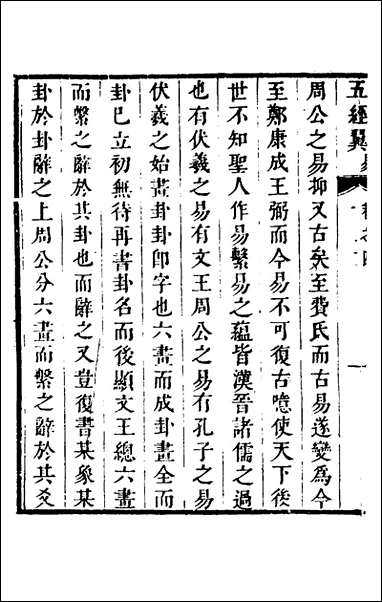 五經翼　易
周公之易抑又古矣至費氏而古易遂變為今
至鄭康成王弼而今易不可復古噫使天下後
世不知聖人作易繫易之蘊皆漢晉諸儒之過
也有伏羲之易有文王周公之易有孔子之易
伏羲之始畫卦卦卽字也六畫而成卦畫全而
卦已立初無待再書卦名而後顯文王總六畫
而繫之辭於其卦也而辭之又豈復書某象某
卦於卦辭之上周公分六畫而繫之辭於其爻